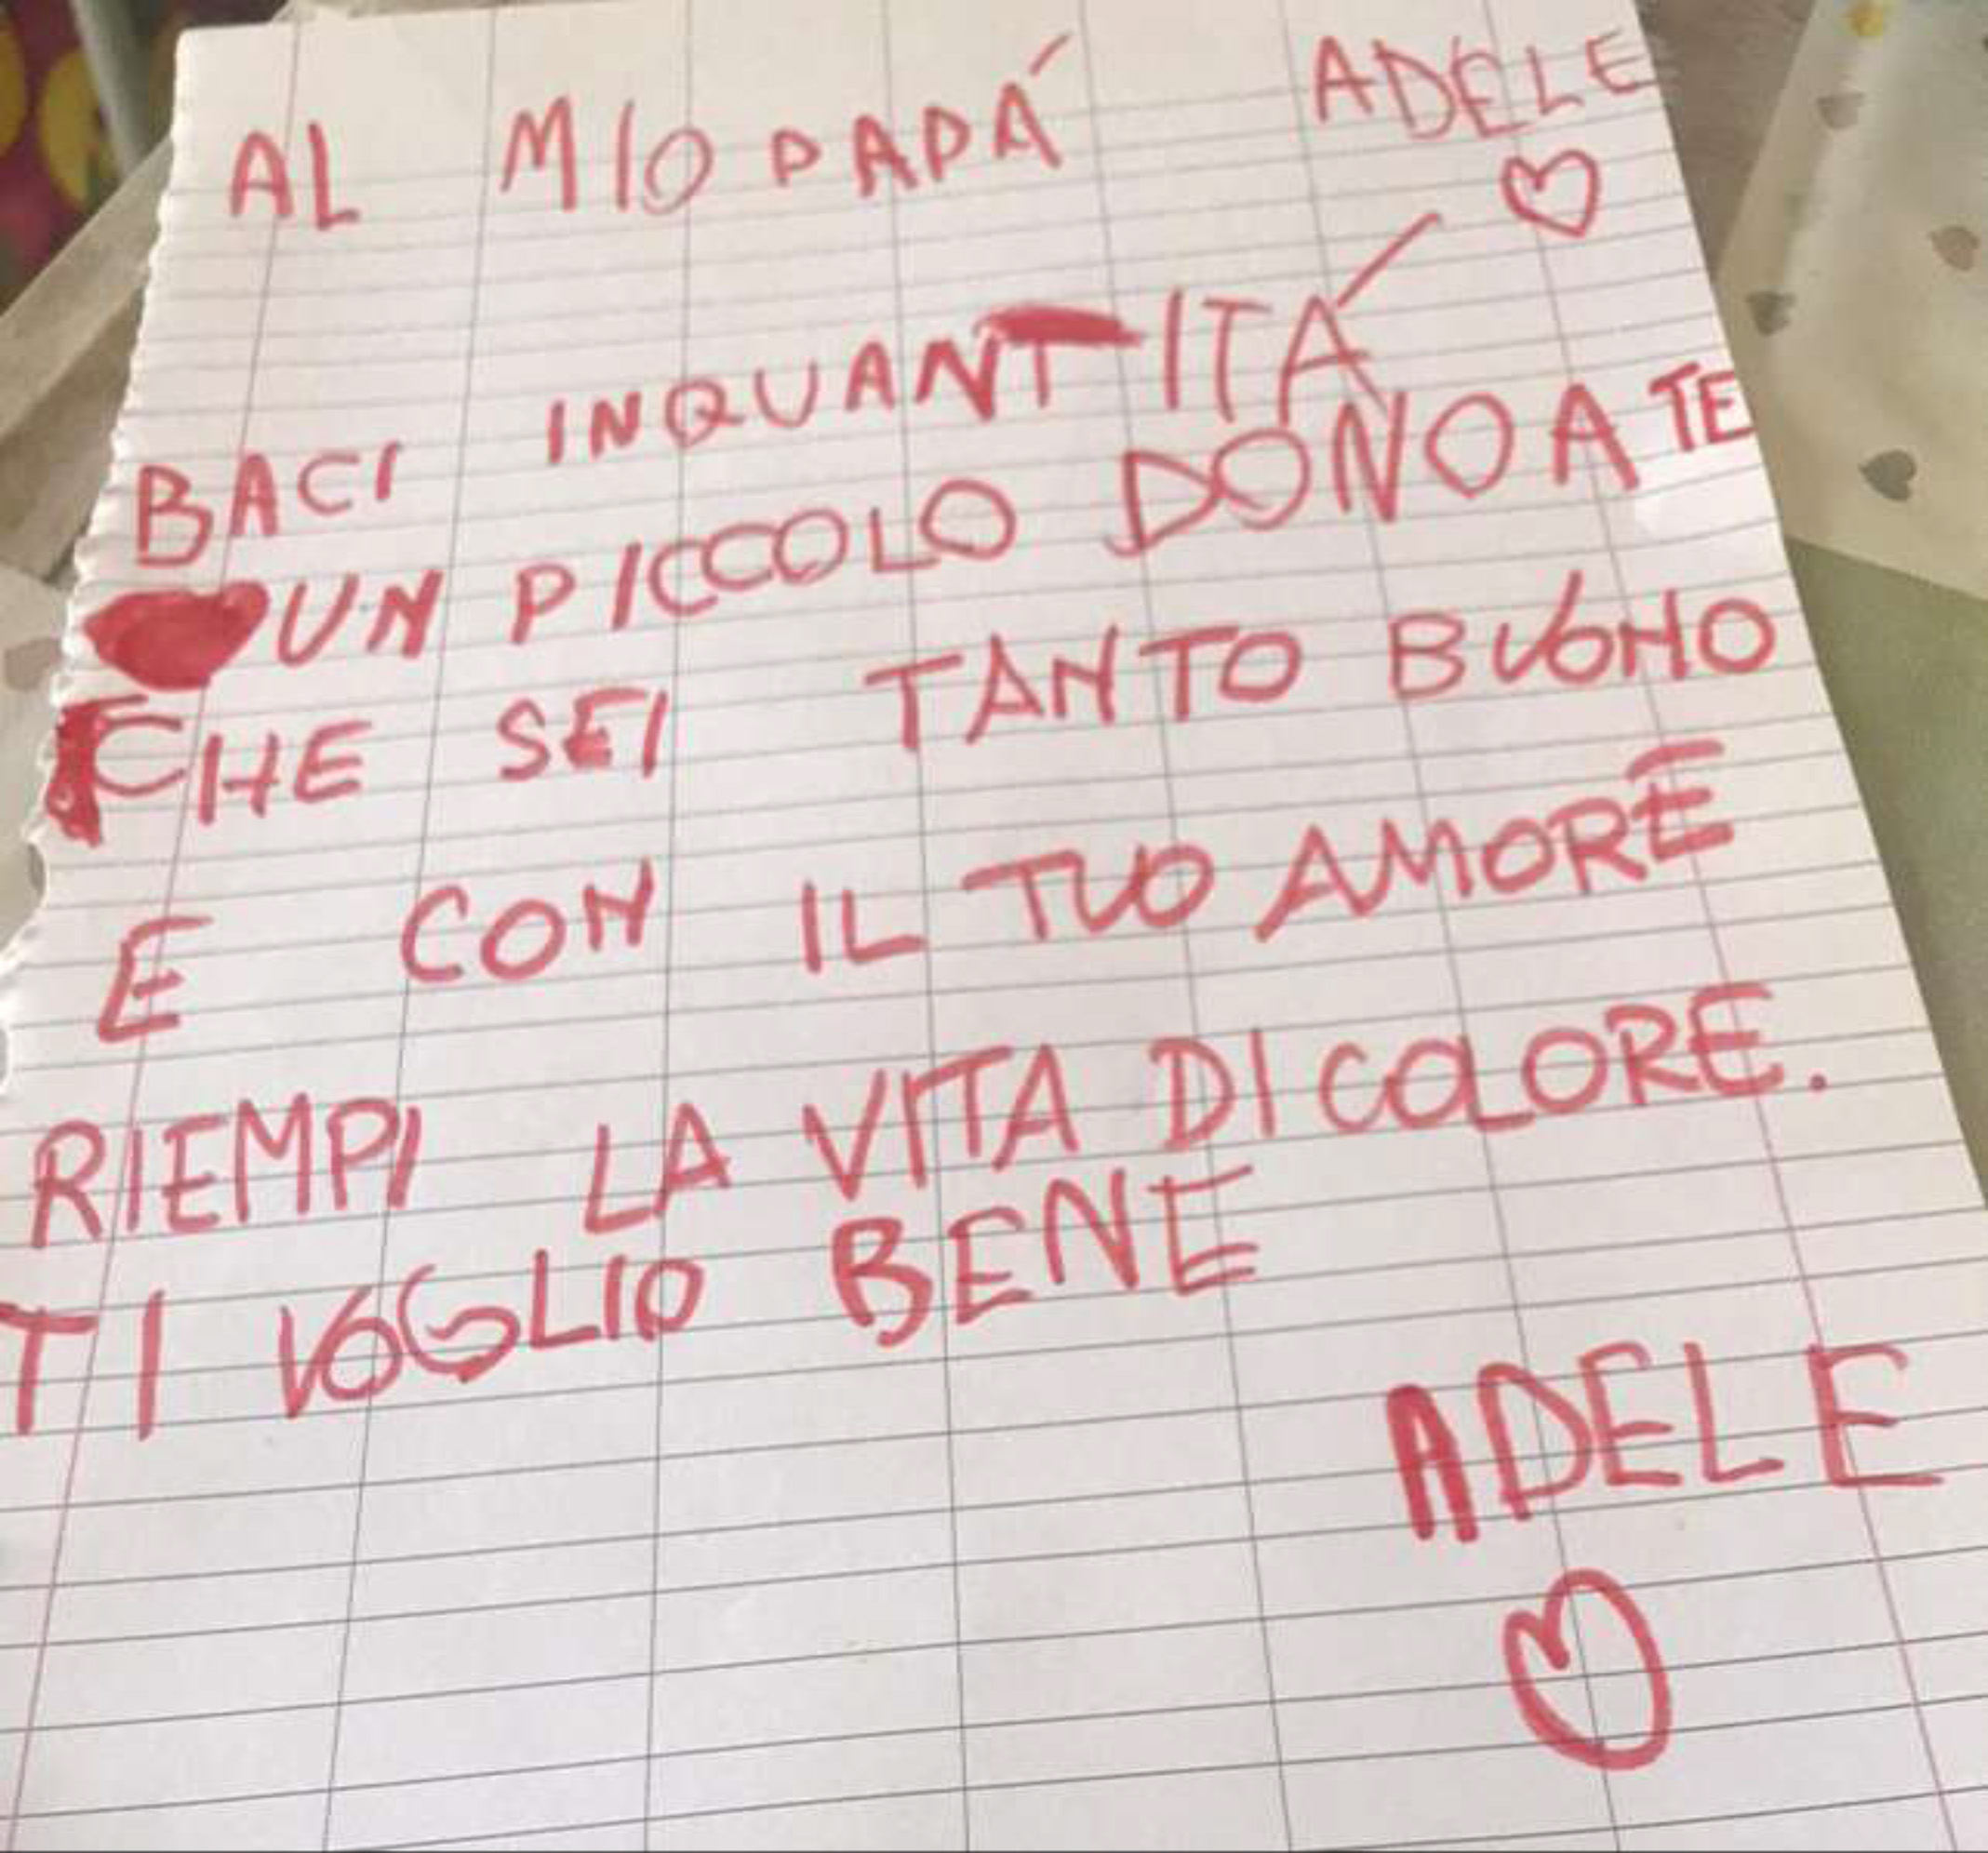 AL MIO PAPÁ ADELE
BACI INQUANTITÁ
UN PICCOLO DONO A TE
CHE SEI TANTO BUONO
E CON IL TUO AMORE
RIEMPI LA VITA DI COLORE.
TI VOGLIO BENE
ADELE